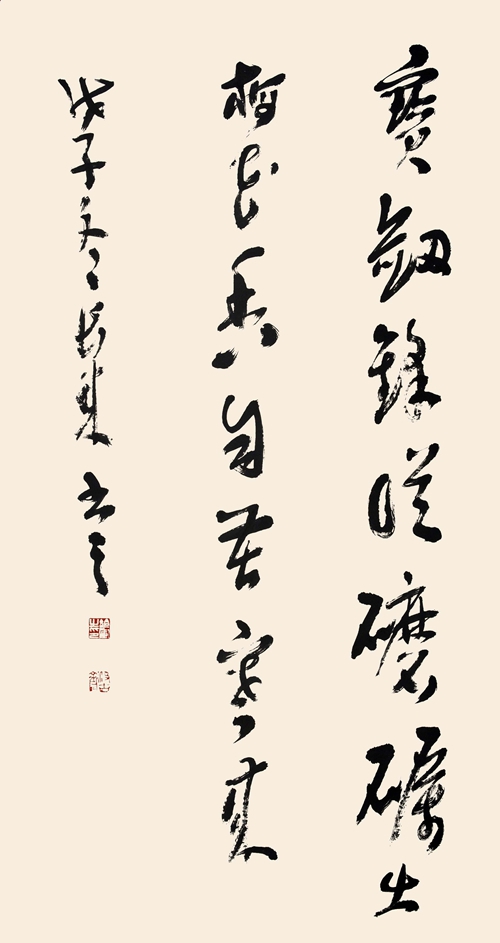 寶劍鋒從磨礪出
梅花香自苦寒來
戊子冬長來書